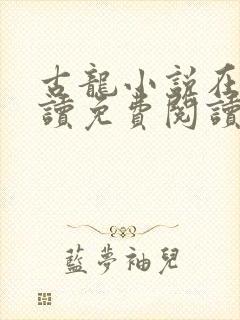 古龍小說在
讀免費閱讀
藍夢袖兒